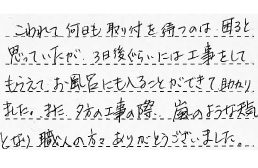 こわれて何日も取り付を待つのは困ると
思っていたが、3日後ぐらいには工事をして
もらえて、お風呂にも入ることができて助かり
ました。また、夕方の工事の際、嵐のような天気
となり職人の方々ありがとうございました。